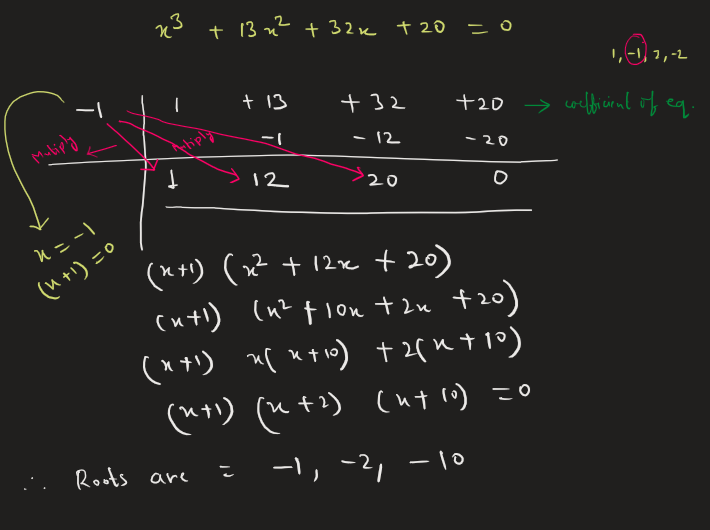 x³ + 13x² + 32x + 20 = 0
1, -1, 2, -2
-1 | 1 + 13 + 32 +20 → coefficient of eq.
-1 - 12 - 20
Multiply ← Multiply
1 12 20 0
x = -1
(x+1) = 0
(x+1) (x² + 12x + 20)
(x+1) (x² + 10x + 2x + 20)
(x+1) x(x+10) + 2(x + 10)
(x+1) (x+2) (x+10) = 0
∴ Roots are = -1, -2, -10